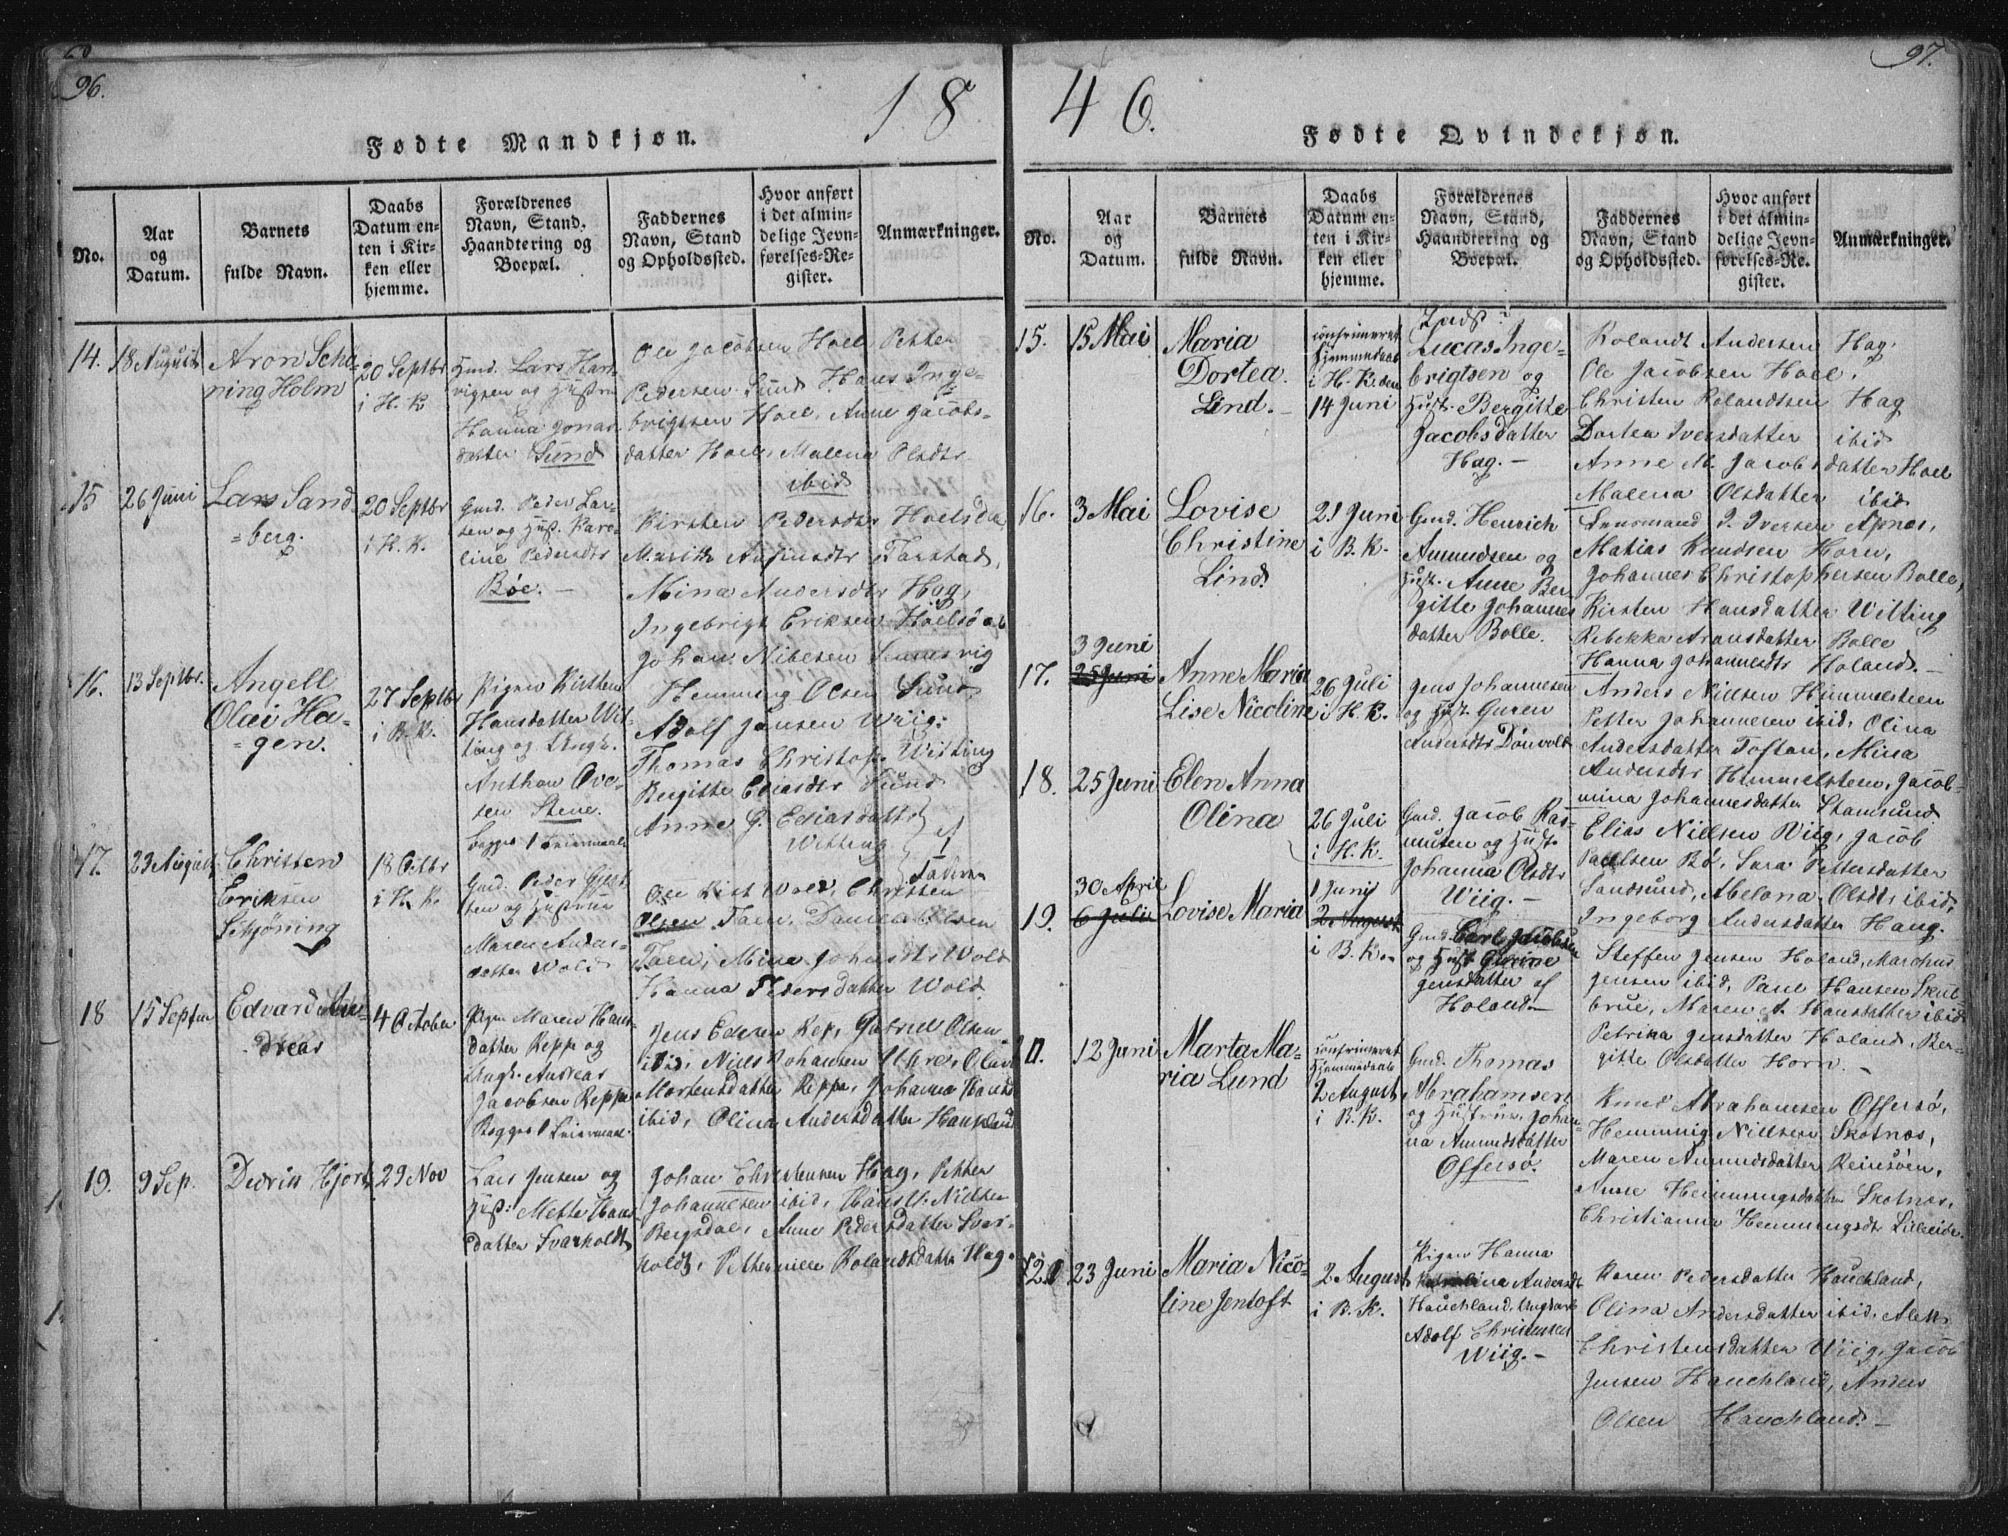 96.
18
Fødte Mandkjøn.
No.
Aar
og
Datum.
Barnets
fulde Navn.
Daabs
Datum en-
ten i Kir-
ken eller
hjemme.
Forældrenes
Navn, Stand,
Haandtering og
Boepæl.
Faddernes
Navn, Stand
og Opholdssted.
Hvor anført
i det almin-
delige Jevn-
førelses-Re-
gister.
Anmærkninger.
14.
18 August
Aron Schø-
ning Holm
20 Septbr
i H. K
Gmd. Lars Hart-
vigsen og Hustru
Hanna Jonas
datter Sund
Ole Jacobsen Hoel Petter
Pedersen Sund Hans Inge-
brigtsen Hoel, Anne Jacobs-
datter Hoel, Malena Olsdtr
ibid
15
26 Juni
Lars Sand-
berg.
20 Septbr
i H. K.
Gmd. Peder Lar-
sen og Hust. Karo-
line Pedersdtr
Bøe. -
Kirsten Pedersdtr
Marith Farstad,
Mina Andersdtr Hag,
Ingebrigt Eriksen
Johan
16.
13 Septbr.
Angell
Olai Ha-
gen.
27 Septbr
i B. K.
Pigen Kirsten
Hansdatter Wit-
ting og Ungk.
Anthon Ove-
sen Stene.
Begges 1 Leiermaal
Hemming Olsen Sund
Adolf Jensen Wiig.
Thomas Christof. Witting
Bergitte Eliasdtr Sund
Anne G. Eliasdatter
Witting
17.
23 August
Christen
Eriksen
Schjøning
18 Octbr
i H. K.
Gmd. Peder
sen og Hustrue
Maren Anders-
datter Wold
Ole Wold, Christen
Olsen Taen, Daniel Olsen
Taen, Mine Johnsdtr Wold
Hanna Pedersdatter Wold.
18
15 Septbr
Edvard An-
dreas
4 October
Pigen Maren Hans-
datter Reppe og
Ungk. Andreas
Jacobsen Reppe
Begges 1 Leiermaal.
Jens Edisen Rep, Gabriel Olsen
ibid, Niels Johansen Ure, Olava
Mortensdatter Reppe, Johanna
ibid, Olina Andersdatter Haugland
19.
9 Sep.
Didrik Hjorth
29 Nov
Lars Jensen og
Hust: Mette Hans
datter Svarholdt
Johan Christensen Hag, Petter
Johannesen ibid, Nielsen
Bergsdal, Anne Pedersdatter Svar-
holdt, Pethernille Rolandsdatter Hag.
97.
46.
Fødte Qvindekjøn.
No.
Aar
og
Datum.
Barnets
fulde Navn.
Daabs
Datum en-
ten i Kir-
ken eller
hjemme.
Forældrenes
Navn, Stand,
Haandtering og
Boepæl.
Faddernes
Navn, Stand
og Opholdssted.
Hvor anført
i det almin-
delige Jevn-
førelses-Re-
gister.
Anmærkninger.
15.
15 Mai
Maria
Dortea
Lind. -
confirmeret
hjemmedaab
i H. K. den
14 Juni
Lucas Inge-
brigtsen og
Hust. Bergitte
Jacobsdatter
Hag. -
Rolandt Andersen Hag,
Ole Jacobsen Hoel,
Christen Rolandtsen Hag
Dortea Iversdatter ibid
Anne M. Jacobsdatter Hoel
Malena Olsdatter ibid
16.
3 Mai
Lovise
Christine
Lind.
21 Juni
i B. K.
Gmd. Henrich
Amundsen og
Hust. Anne Ber-
gitte Johannes
datter Bolle.
Lensmand J. Iversen Apnæs,
Matias Knudsen Horn,
Johannes Christophersen Bolle,
Kirsten Hansdatter Witting
Rebekka Aronsdatter Bolle
Hanna Johannesdtr Holand. -
17.
3 Juni
25 Juni
Anne Maria
Lise Nicoline
26 Juli
i H. K.
Jens Johannesen
og Hust. Guren
Andersdtr Dønvold
Anders Nielsen Himmelsteen
Petter Johannesen ibid, Olina
Andersdatter Toftan, Mina
Andersdtr Himmelsteen, Jacob-
mina Johannesdatter Stamsund
18.
25 Juni
Elen Anna
Olina
26 Juli
i H. K.
Gmd. Jacob Ras-
musen og Hust.
Johanna Olsdtr
Wiig. -
Elias Nielsen Wiig, Jacob
Paulsen Bø, Sara Pettersdatter
Sandsund, Abelona Olsdtr ibid,
Ingeborg Andersdatter Haug.
19.
30 April
6 Julii
Lovise Maria
1 Juni
2 August
i B. K.
Gmd. Carl Jacobsen
og Hust Gurine
Jensdatter af
Holand -
Steffen Jensen Holand, Marchus
Jensen ibid, Paul Hansen Skul-
brue, Maren A. Hansdatter ibid
Petrika Jensdatter Holand, Ber-
gitte Olsdatter Horn. -
20.
12 Juni
Marta Ma-
ria Lund
confirmeret
Hjemmedaab
2 August
i B. K.
Gmd. Thomas
Abrahamsen
og Hustrue, Johan-
na Amundsdatter
Offersø.
Knud Abrahamsen Offersø,
Hemmnig Nielsen Skotnæs,
Maren Amundsdatter Reinsøen,
Anne Hemmingsdatter Skotnæs,
Christianna Hemmingsdtr Lilleide.
21
23 Juni
Maria Nico-
line Jentoft
2 August
i B. K.
Pigen Hanna
Andersdt
Hauchland, Ungkarl
Adolf Christensen
Wiig. -
Karen Pedersdatter Hauchland,
Olina Andersdatter ibid, Alet
Christensdatter Wiig, Jacob
Jensen Hauchland, Anders
Olsen Hauchland. -